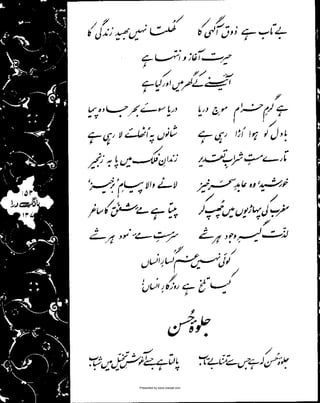 بے تاب ہے ذوق آگہی کا
کھلتا نہیں بھید زندگی کا
حیرت آغاز و انتہا ہے
آئینے کے گھر میں اور کیا ہے
ہے گرم خرام موج دریا
دریا سوئے بحر جادہ پیما
بادل کو ہوا اڑا رہی ہے
شانوں پہ اٹھائے لا رہی ہے
تارے مست شراب تقدیر
زندان فلک میں پا بہ زنجیر
خورشید، وہ عابد سحر خیز
لانے والا پیام 'برخیز'
مغرب کی پہاڑیوں میں چھپ کر
پیتا ہے مے شفق کا ساغر
لذت گیر وجود ہر شے
سرمست مے نمود ہر شے
کوئی نہیں غم گسار انساں
کیا تلخ ہے روزگار انساں!
جلوۂ حسن
جلوۂ حسن کہ ہے جس سے تمنا بے تاب
پالتا ہے جسے آغوش تخیل میں شباب
بانگ درا
Presented by www.iqbalal.com